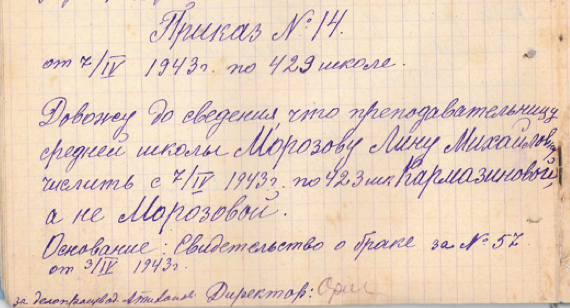 Приказ № 14.
от 7/IV 1943 г. по 429 школе.
Довожу до сведения, что преподавательницу
средней школы Морозову Лину Михайловну
числить с 7/IV 1943 г. по 423 шк Кармазиновой,
а не Морозовой.
Основание: Свидетельство о браке за № 57
от 3/IV 1943 г.
за делопроизвод. Директор: